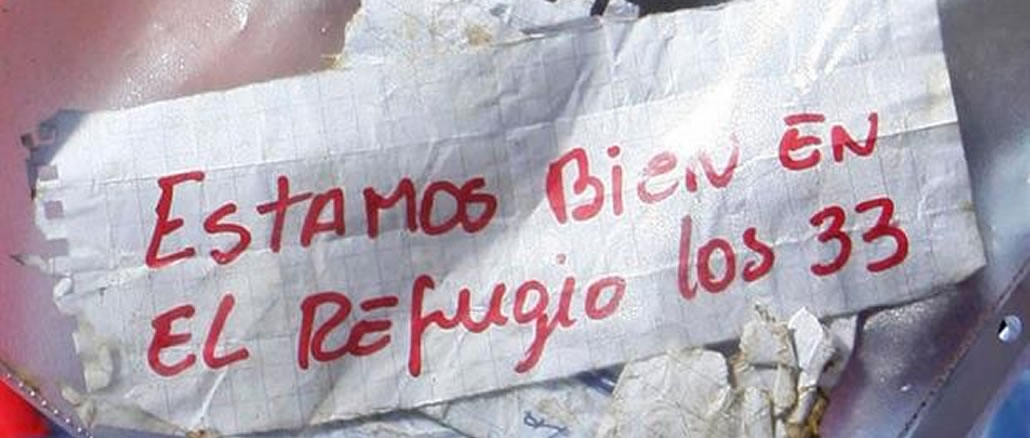 EstAMOS BieN EN
EL REfugio los 33